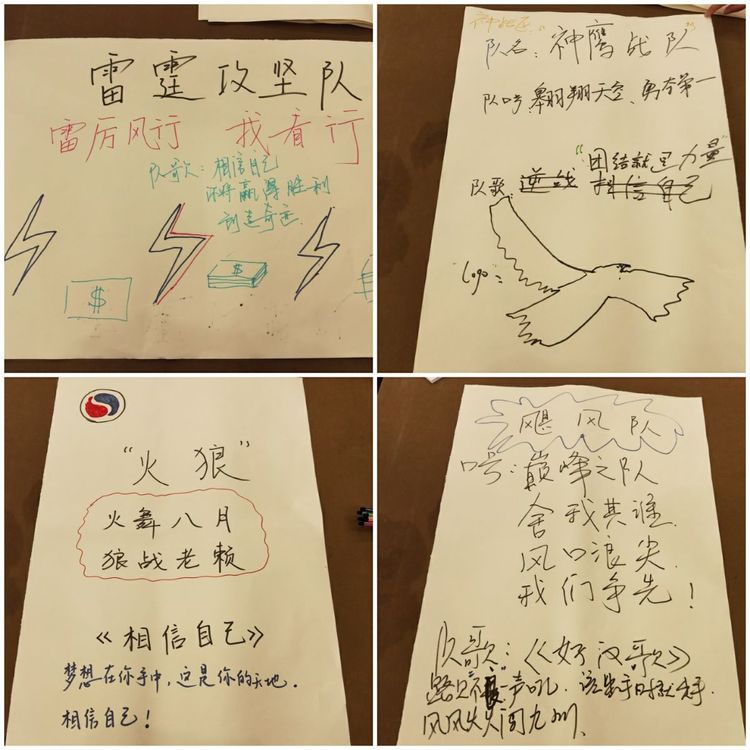 雷霆攻坚队
雷厉风行 我看行
队歌：相信自己
你将赢得胜利
创造奇迹
$
$
队名：神鹰战队
队呺：翱翔天空、勇夺第一
“团结就是力量”
队歌 逆战 相信自己
Logo：
“火狼”
火舞八月
狼战老赖
《相信自己》
梦想在你手中，这是你的天地.
相信自己！
飓风队
口号：巅峰之队
舍我其谁.
风口浪尖.
我们争先！
队歌：《好汉歌》
路见不声吼. 该出手时就出手.
风风火火闯九州.